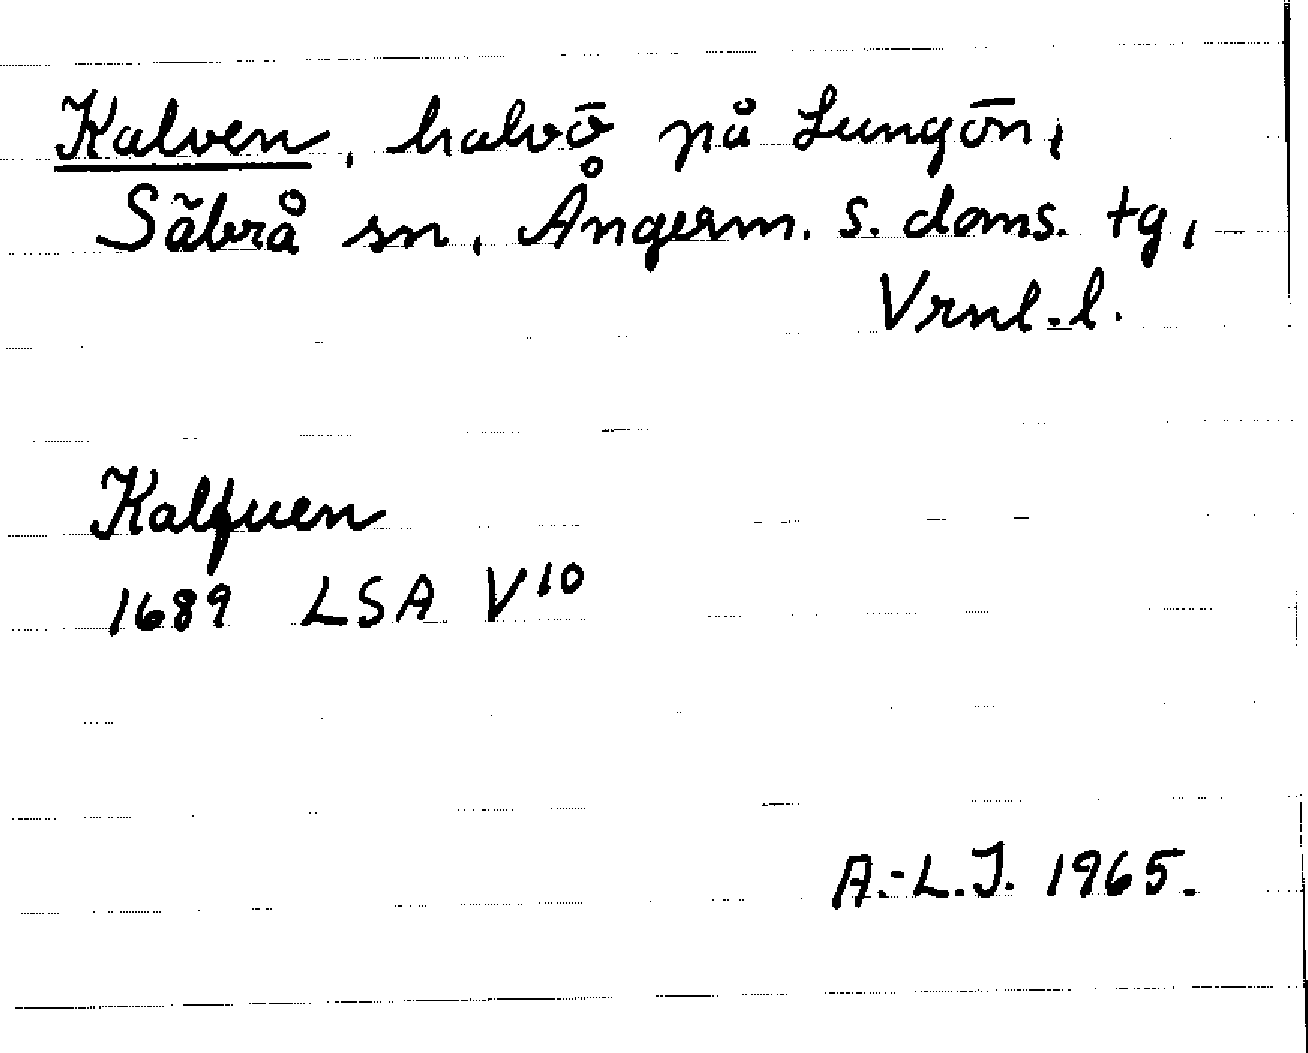 Kalven, halvö på Lungön,
Säbrå sn, Ångerm. s. doms. tg,
Vrnl. l.
Kalfuen
1689 LSA V10
A.-L.J. 1965.